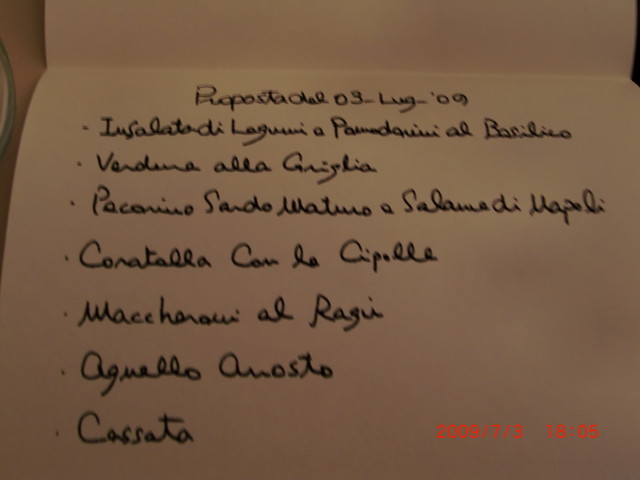 Proposta del 03-Lug-'09
- Insalata di Legumi e Pomodorini al Basilico
- Verdure alla Griglia
- Pecorino Sardo Maturo e Salame di Napoli
- Coratella Con le Cipolle
- Maccheroni al Ragù
- Agnello Arrosto
- Cassata
2009/7/3 18:05